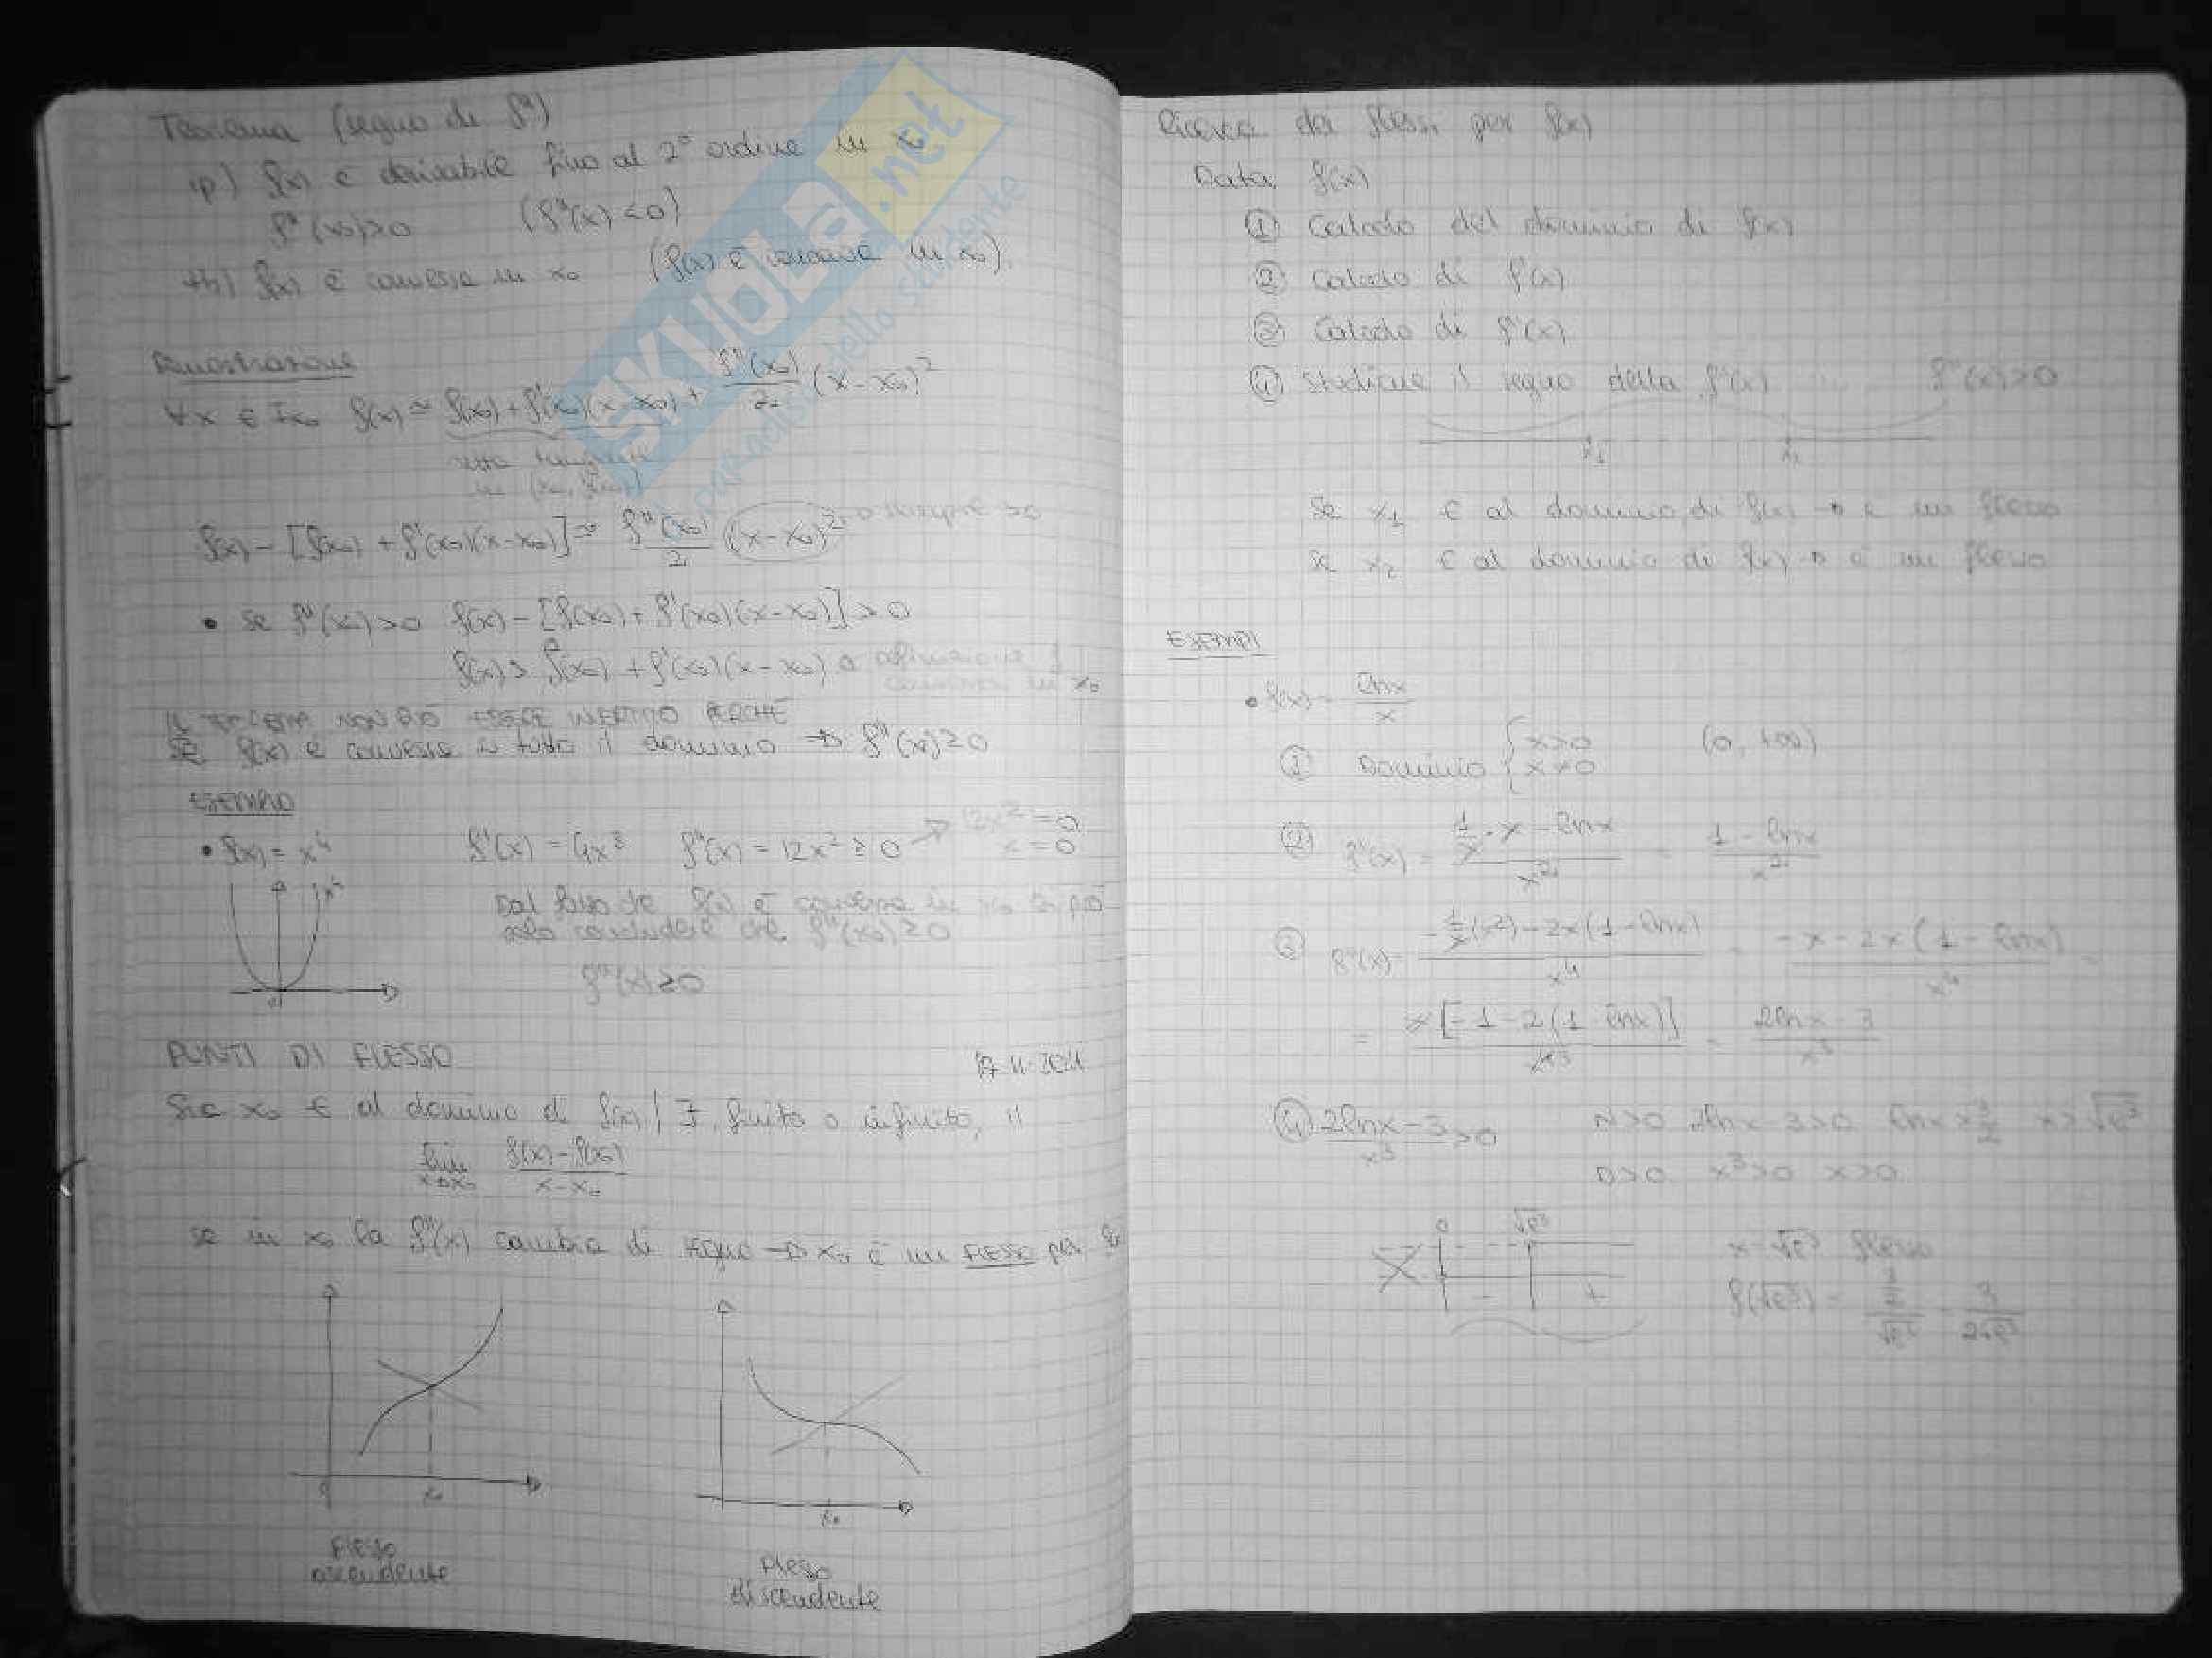 Teorema (segno di f")
ip) f(x) è derivabile fino al 2° ordine in x₀
f"(x₀)>0 (f"(x)<0)
th) f(x) è convessa in x₀ (f(x) è concava in x₀)
Dimostrazione
∀x ∈ Ix₀ f(x) ≃ f(x₀)+f'(x₀)(x-x₀) + f"(x₀)/2 (x-x₀)²
retta tangente
in (x₀, f(x₀))
f(x) - [f(x₀) + f'(x₀)(x-x₀)] ≃ f"(x₀)/2 (x-x₀)² → sempre >0
• Se f"(x₀)>0 f(x) - [f(x₀) + f'(x₀)(x-x₀)] > 0
f(x) > f(x₀) + f'(x₀)(x-x₀) → definizione f
convessa in x₀
IL TEOREMA NON PUÒ ESSERE INVERTITO PERCHÉ
se f(x) è convessa in tutto il dominio → f"(x)≥0
ESEMPIO
• f(x) = x⁴ f'(x) = 4x³ f"(x) = 12x² ≥ 0 → 12x² = 0
x = 0
x⁴
Dal fatto che f(x) è convessa in x₀ si può
solo concludere che f"(x₀) ≥0
f"(x)≥0
PUNTI DI FLESSO
Sia x₀ ∈ al dominio di f(x) / ∃, finito o infinito, il
lim x→x₀ f(x)-f(x₀)/x-x₀
se in x₀ la f"(x) cambia di segno → x₀ è un FLESSO per
x₀
flesso
ascendente
x₀
flesso
discendente
Ricerca dei flessi per f(x)
Data f(x)
① Calcolo del dominio di f(x)
② Calcolo di f'(x)
③ Calcolo di f"(x)
④ Studiare il segno della f"(x) f"(x)>0
x₁ x₂
Se x₁ ∈ al dominio di f(x) → è un flesso
Se x₂ ∈ al dominio di f(x) → è un flesso
ESEMPI
• f(x) = lnx/x
① Dominio { x>0 (0, +∞)
x≠0
② f'(x) = (1/x · x - lnx)/x² = (1-lnx)/x²
③ f"(x) = (-1/x(x²)-2x(1-lnx))/x⁴ = (-x-2x(1-lnx))/x⁴ =
= x[-1-2(1-lnx)]/x⁴³ = (2lnx-3)/x³
④ (2lnx-3)/x³ >0 N>0 2lnx-3>0 lnx>3/2 x>√e³
D>0 x³>0 x>0
0 √e³
- +
x=√e³ flesso
f(√e³) = (3/2)/√e³ = 3/2√e³
SKUOLA.net
paradiso dello studente